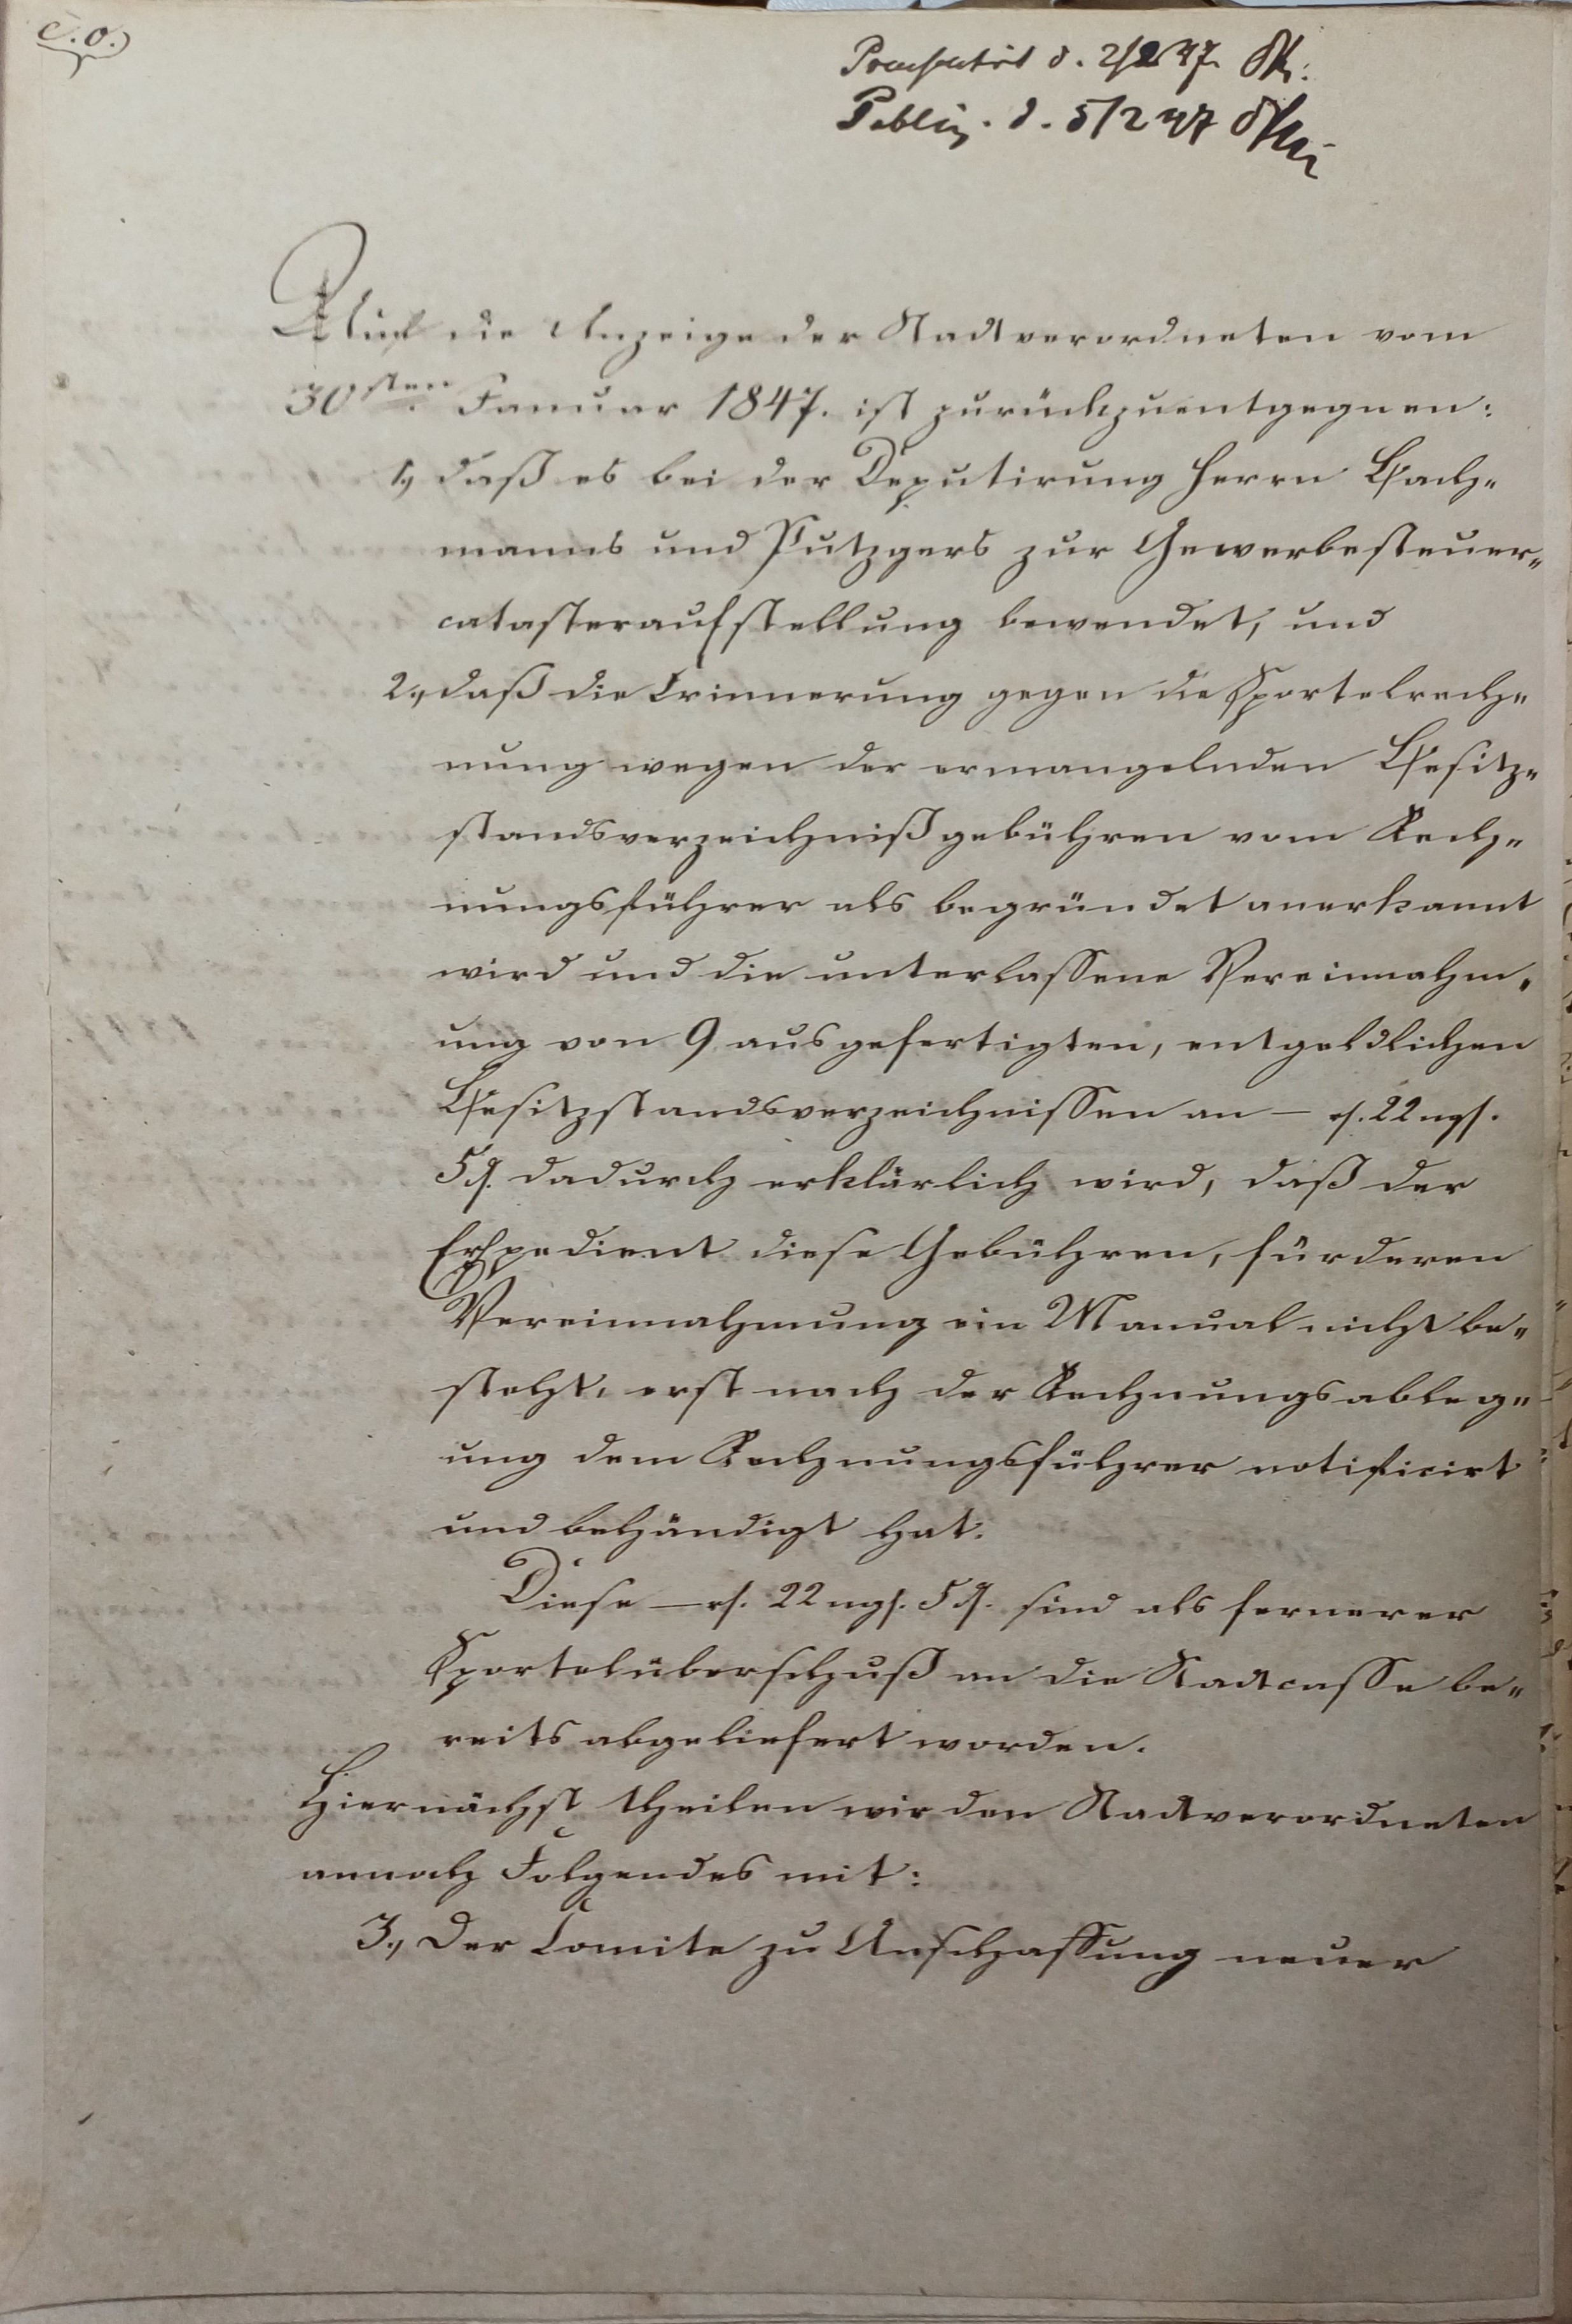 C. O.
Praesentirt d. 2/2 47.
Public. d. 5/2 47
Auf die Anzeige der Stadtverordneten vom
30sten Januar 1847. ist zurückzuentgegnen:
1., daß es bei der Deputirung Herrn Bach-
manns und Putzgers zur Gewerbesteuer-
catasteraufstellung bewendet, und
2., daß die Erinnerung gegen die Sportelrech-
nung wegen der ermangelnden Besitz-
standsverzeichnißgebühren vom Rech-
nungsführer als begründet anerkannt
wird und die unterlassene Vereinnahm-
ung von 9 ausgefertigten, entgeldlichen
Besitzstandsverzeichnissen an — rf. 22 ngf.
5 d. dadurch erklärlich wird, daß der
Expedient diese Gebühren, für deren
Vereinnahmung ein Manual nicht be-
steht, erst nach der Rechnungsableg-
ung dem Rechnungsführer notificirt
und behändigt hat.
Diese — rf. 22 ngf. 5 d. sind als fernerer
Sportelüberschuß an die Stadtcasse be-
reits abgeliefert worden.
Hiernächst theilen wir den Stadtverordneten
annoch Folgendes mit:
3., Der Comite zu Anschaffung neuer